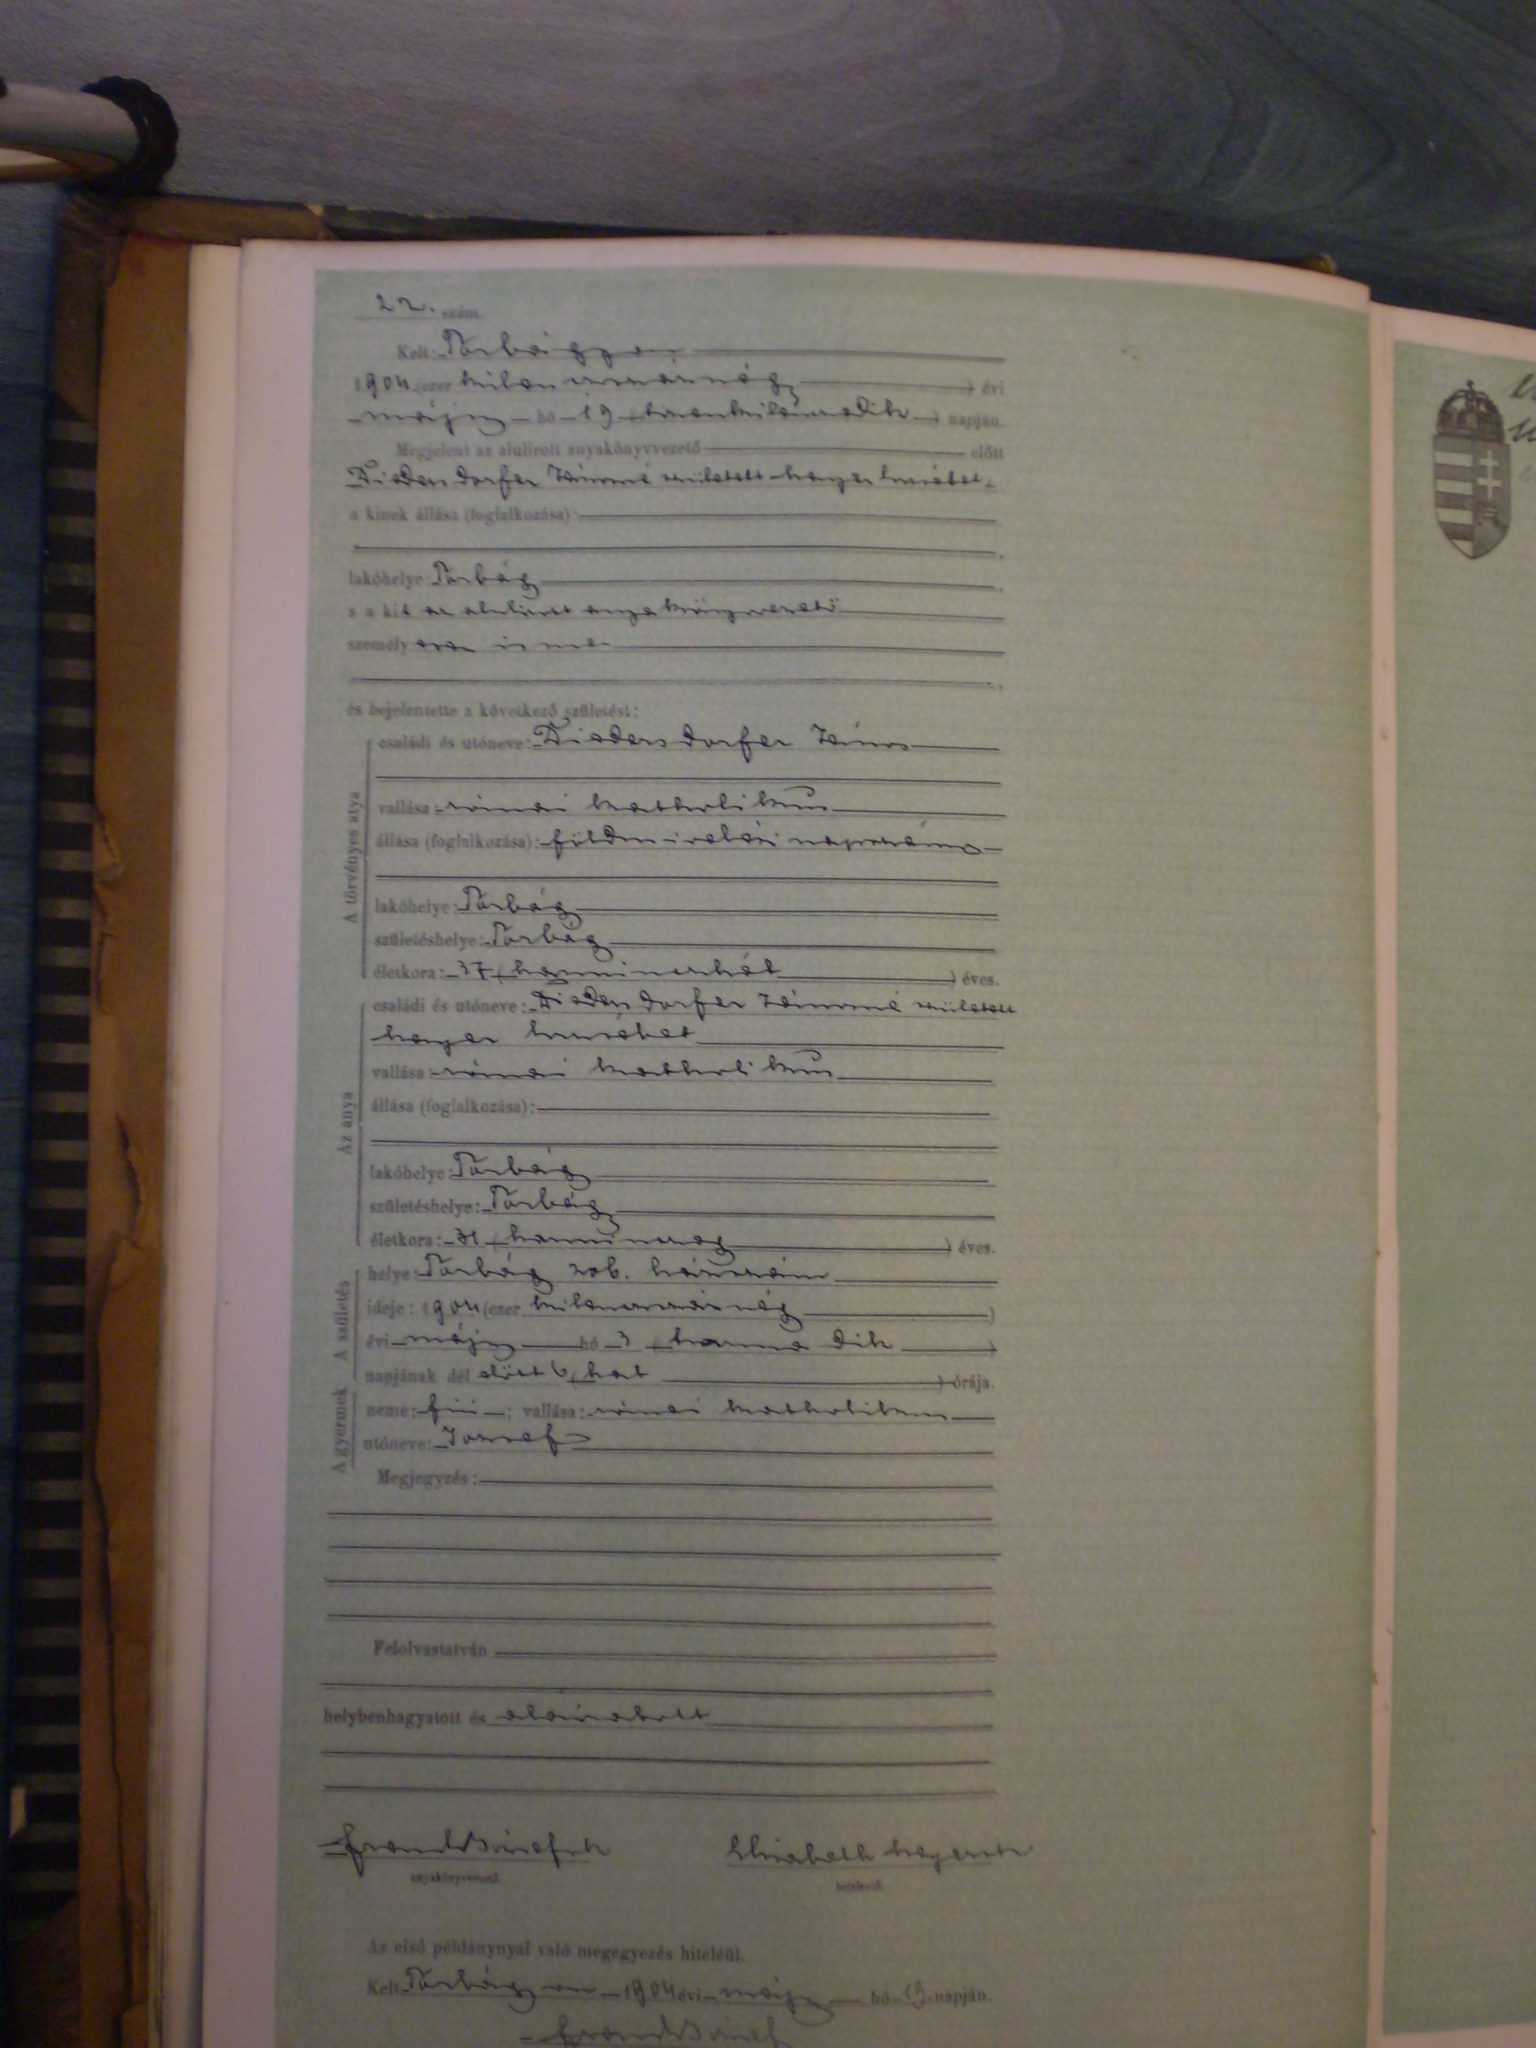 22. szám.
Kelt: Torbágyon
1904 (ezer kilenczszáznégy) évi
május hó 19 (tizenkilenczedik) napján.
Megjelent az alulirott anyakönyvvezető előtt
Diedersdorfer Jánosné született Erzsébet,
a kinek állása (foglalkozása):
lakóhelye: Torbágy
s a kit az alulirott anyakönyvvezető
személyesen ismer
és bejelentette a következő születést:
A törvényes atya
családi és utóneve: Diedersdorfer János
vallása: római katholikus
állása (foglalkozása): földmivelési napszámos
lakóhelye: Torbágy
születéshelye: Torbágy
életkora: 37 (harminczhét) éves.
Az anya
családi és utóneve: Diedersdorfer Jánosné született
Erzsébet
vallása: római katholikus
állása (foglalkozása):
lakóhelye: Torbágy
születéshelye: Torbágy
életkora: 31 (harminczegy) éves.
A születés
helye: Torbágy 206. házszám
ideje: 1904 (ezer kilenczszáznégy)
évi május hó 3 (harmadik)
napjának dél előtt 6 (hat) órája.
A gyermek
neme: fiú; vallása: római katholikus
utóneve: József
Megjegyzés:
Felolvastatván
helybenhagyatott és aláiratott
anyakönyvvezető.
Elisabeth
bejelentő.
Az első példánynyal való megegyezés hiteléül.
Kelt Torbágyon 1904 évi május hó 19 napján.